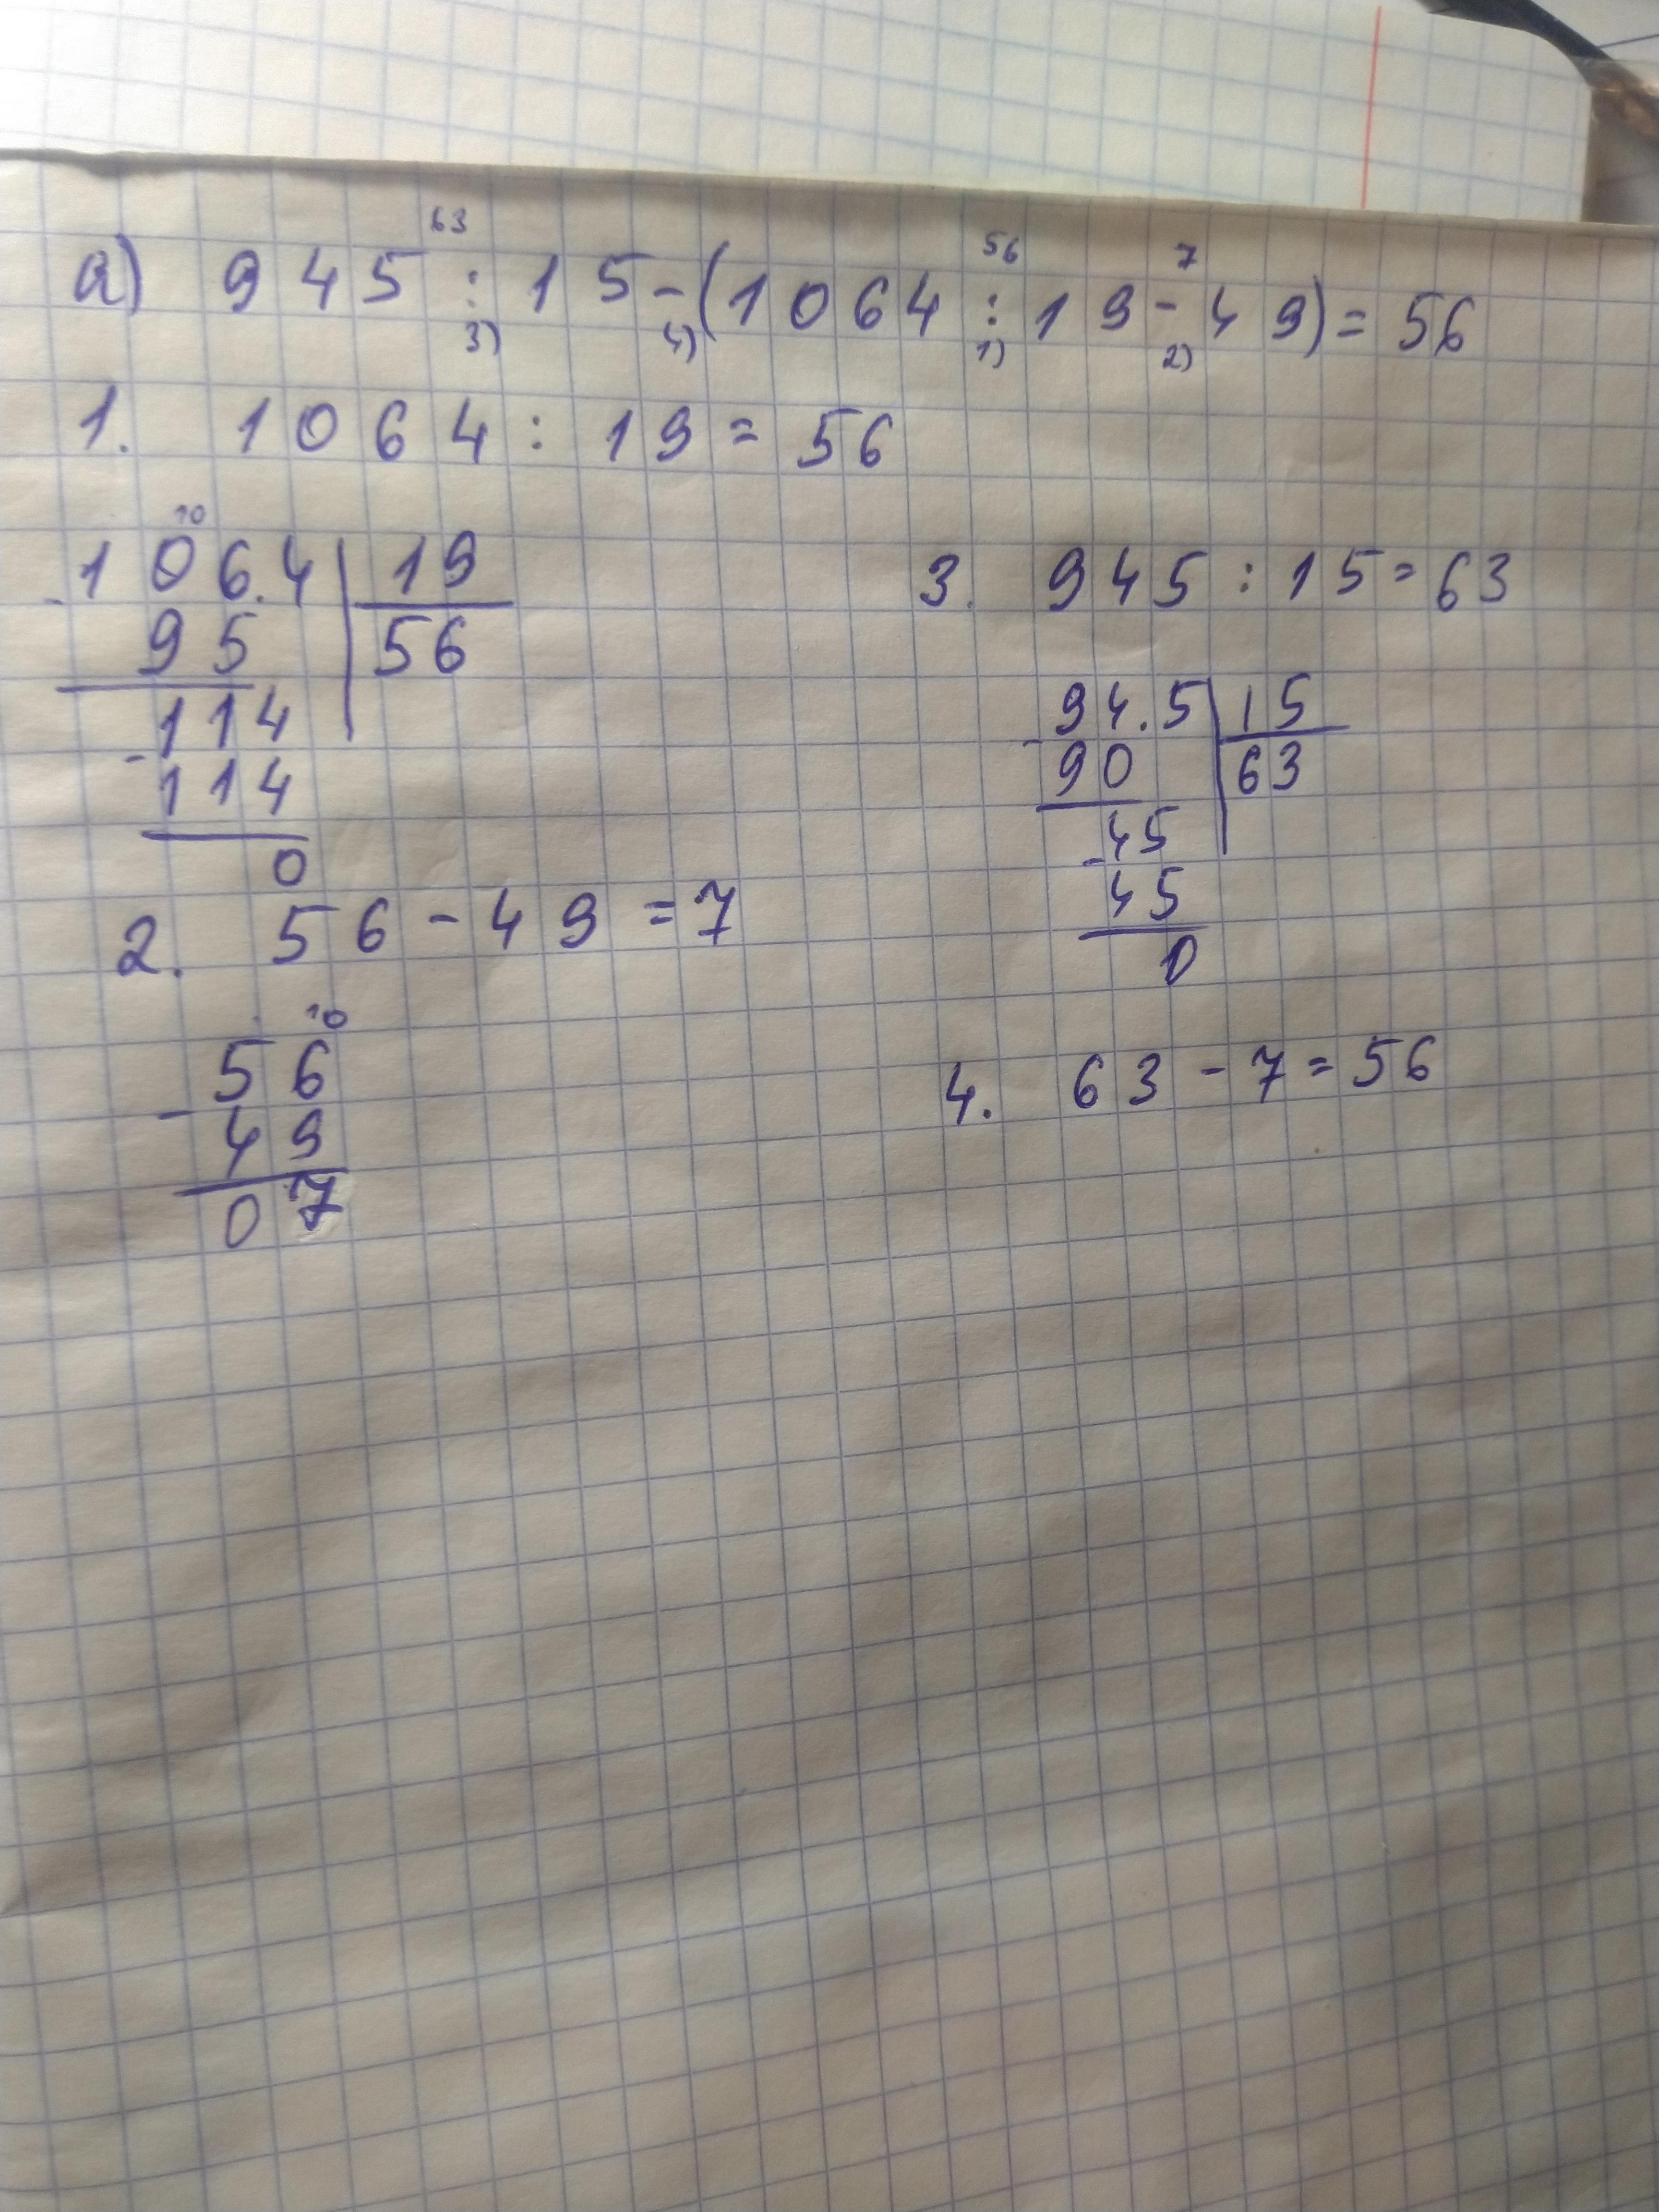 63 56 7
а) 945 : 15 - (1064 : 19 - 49) = 56
3) 4) 1) 2)
1. 1064 : 19 = 56
10
- 106.4 | 19
95 | 56
- 114
114
0
2. 56 - 49 = 7
. 10
- 56
49
07
3. 945 : 15 = 63
- 94.5 | 15
90 | 63
- 45
45
0
4. 63 - 7 = 56